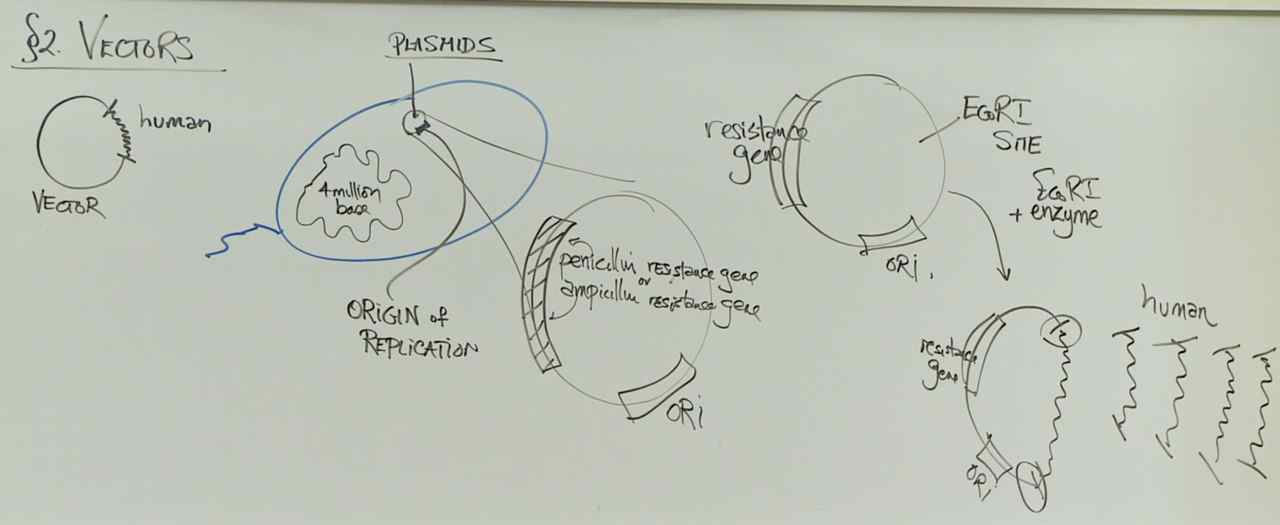 §2. VECTORS
human
VECTOR
PLASMIDS
4 million
base
ORIGIN of
REPLICATION
penicillin resistance gene
or
ampicillin resistance gene
ORi
resistance
gene
EcoRI
SITE
ORi.
EcoRI
+ enzyme
resistance
gene
ORi
human